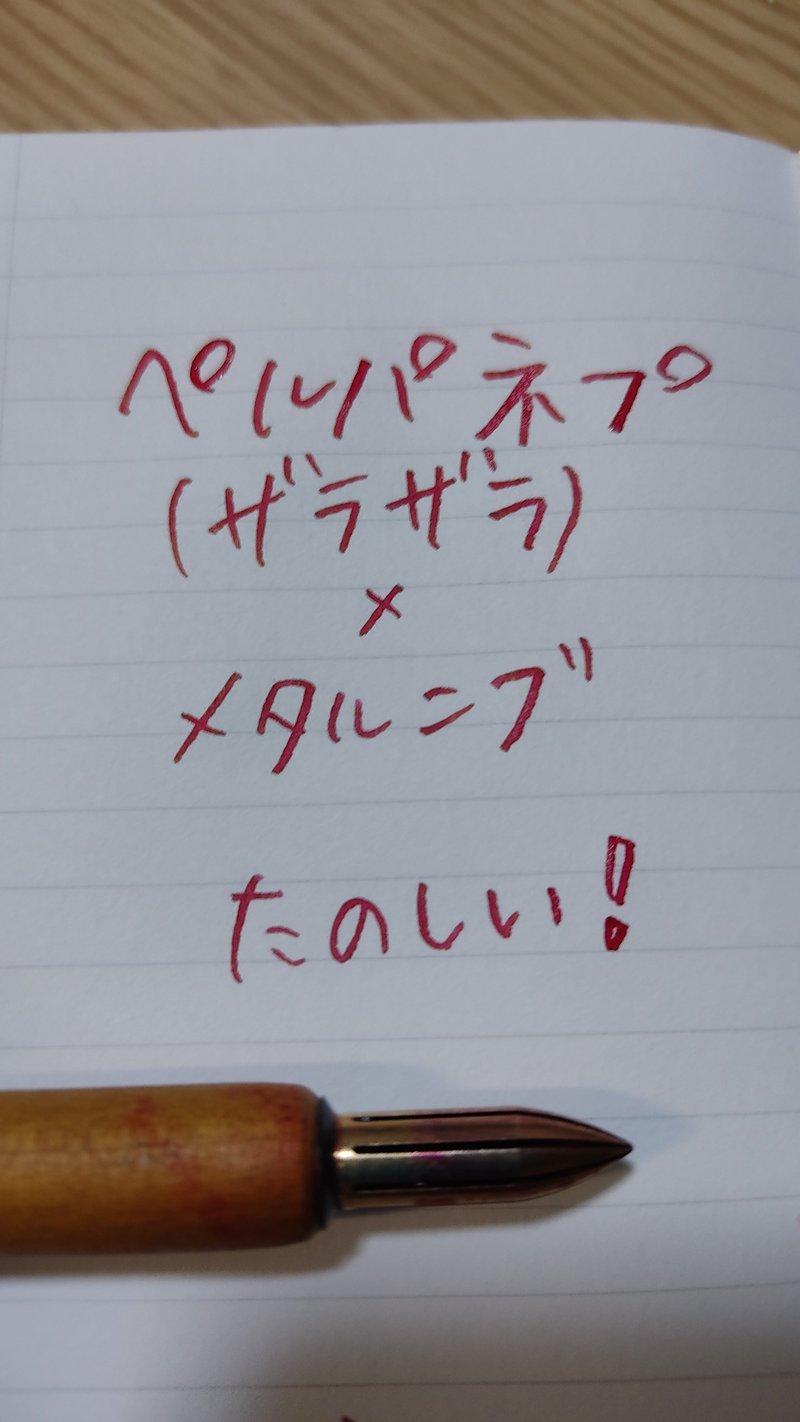 ペルパネプ
(ザラザラ)
×
メタルニブ
たのしい!